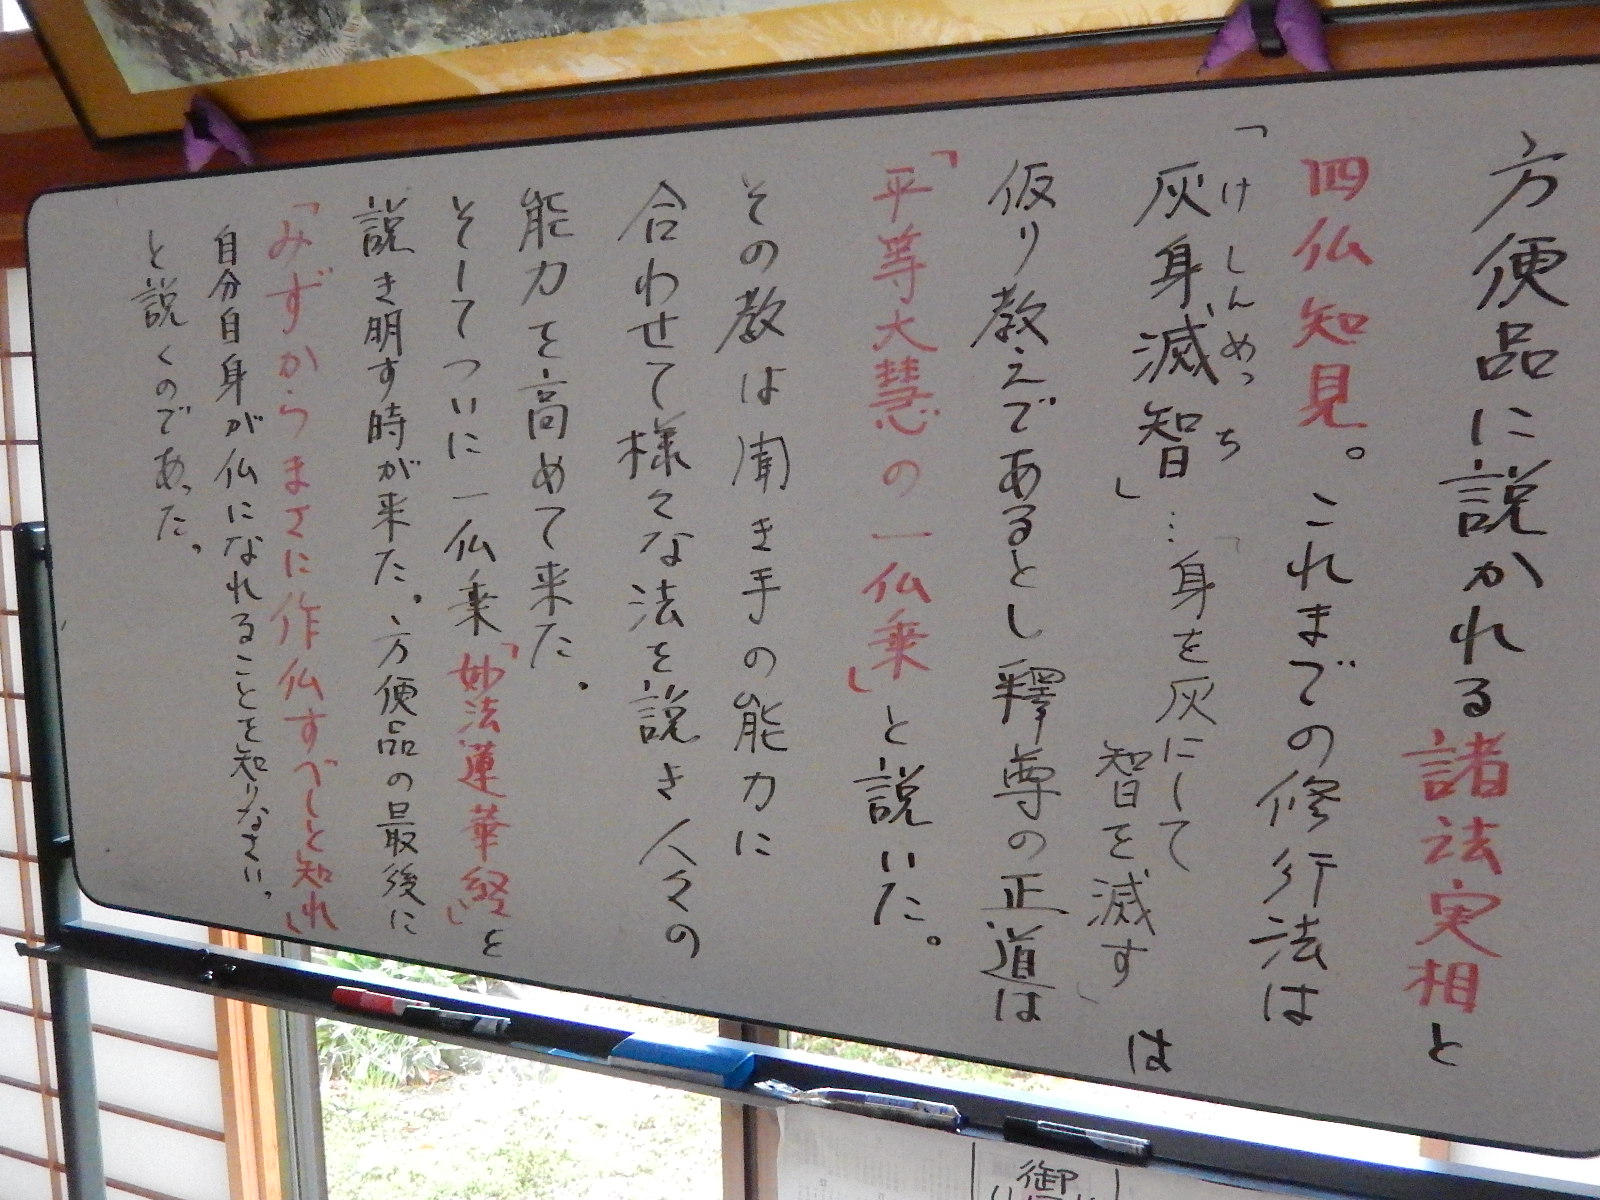 方便品に説かれる諸法実相と
四仏知見。これまでの修行法は
「けしんめっち
灰身滅智」…「身を灰にして
智を滅す」は
仮り教えであるとし釋尊の正道は
「平等大慧の一仏乗」と説いた。
その教は聞き手の能力に
合わせて様々な法を説き人々の
能力を高めて来た。
そしてついに一仏乗「妙法蓮華経」を
説き明す時が来た。方便品の最後に
「みずからまさに作仏すべしと知れ」
自分自身が仏になれることを知りなさい。
と説くのであった。
御